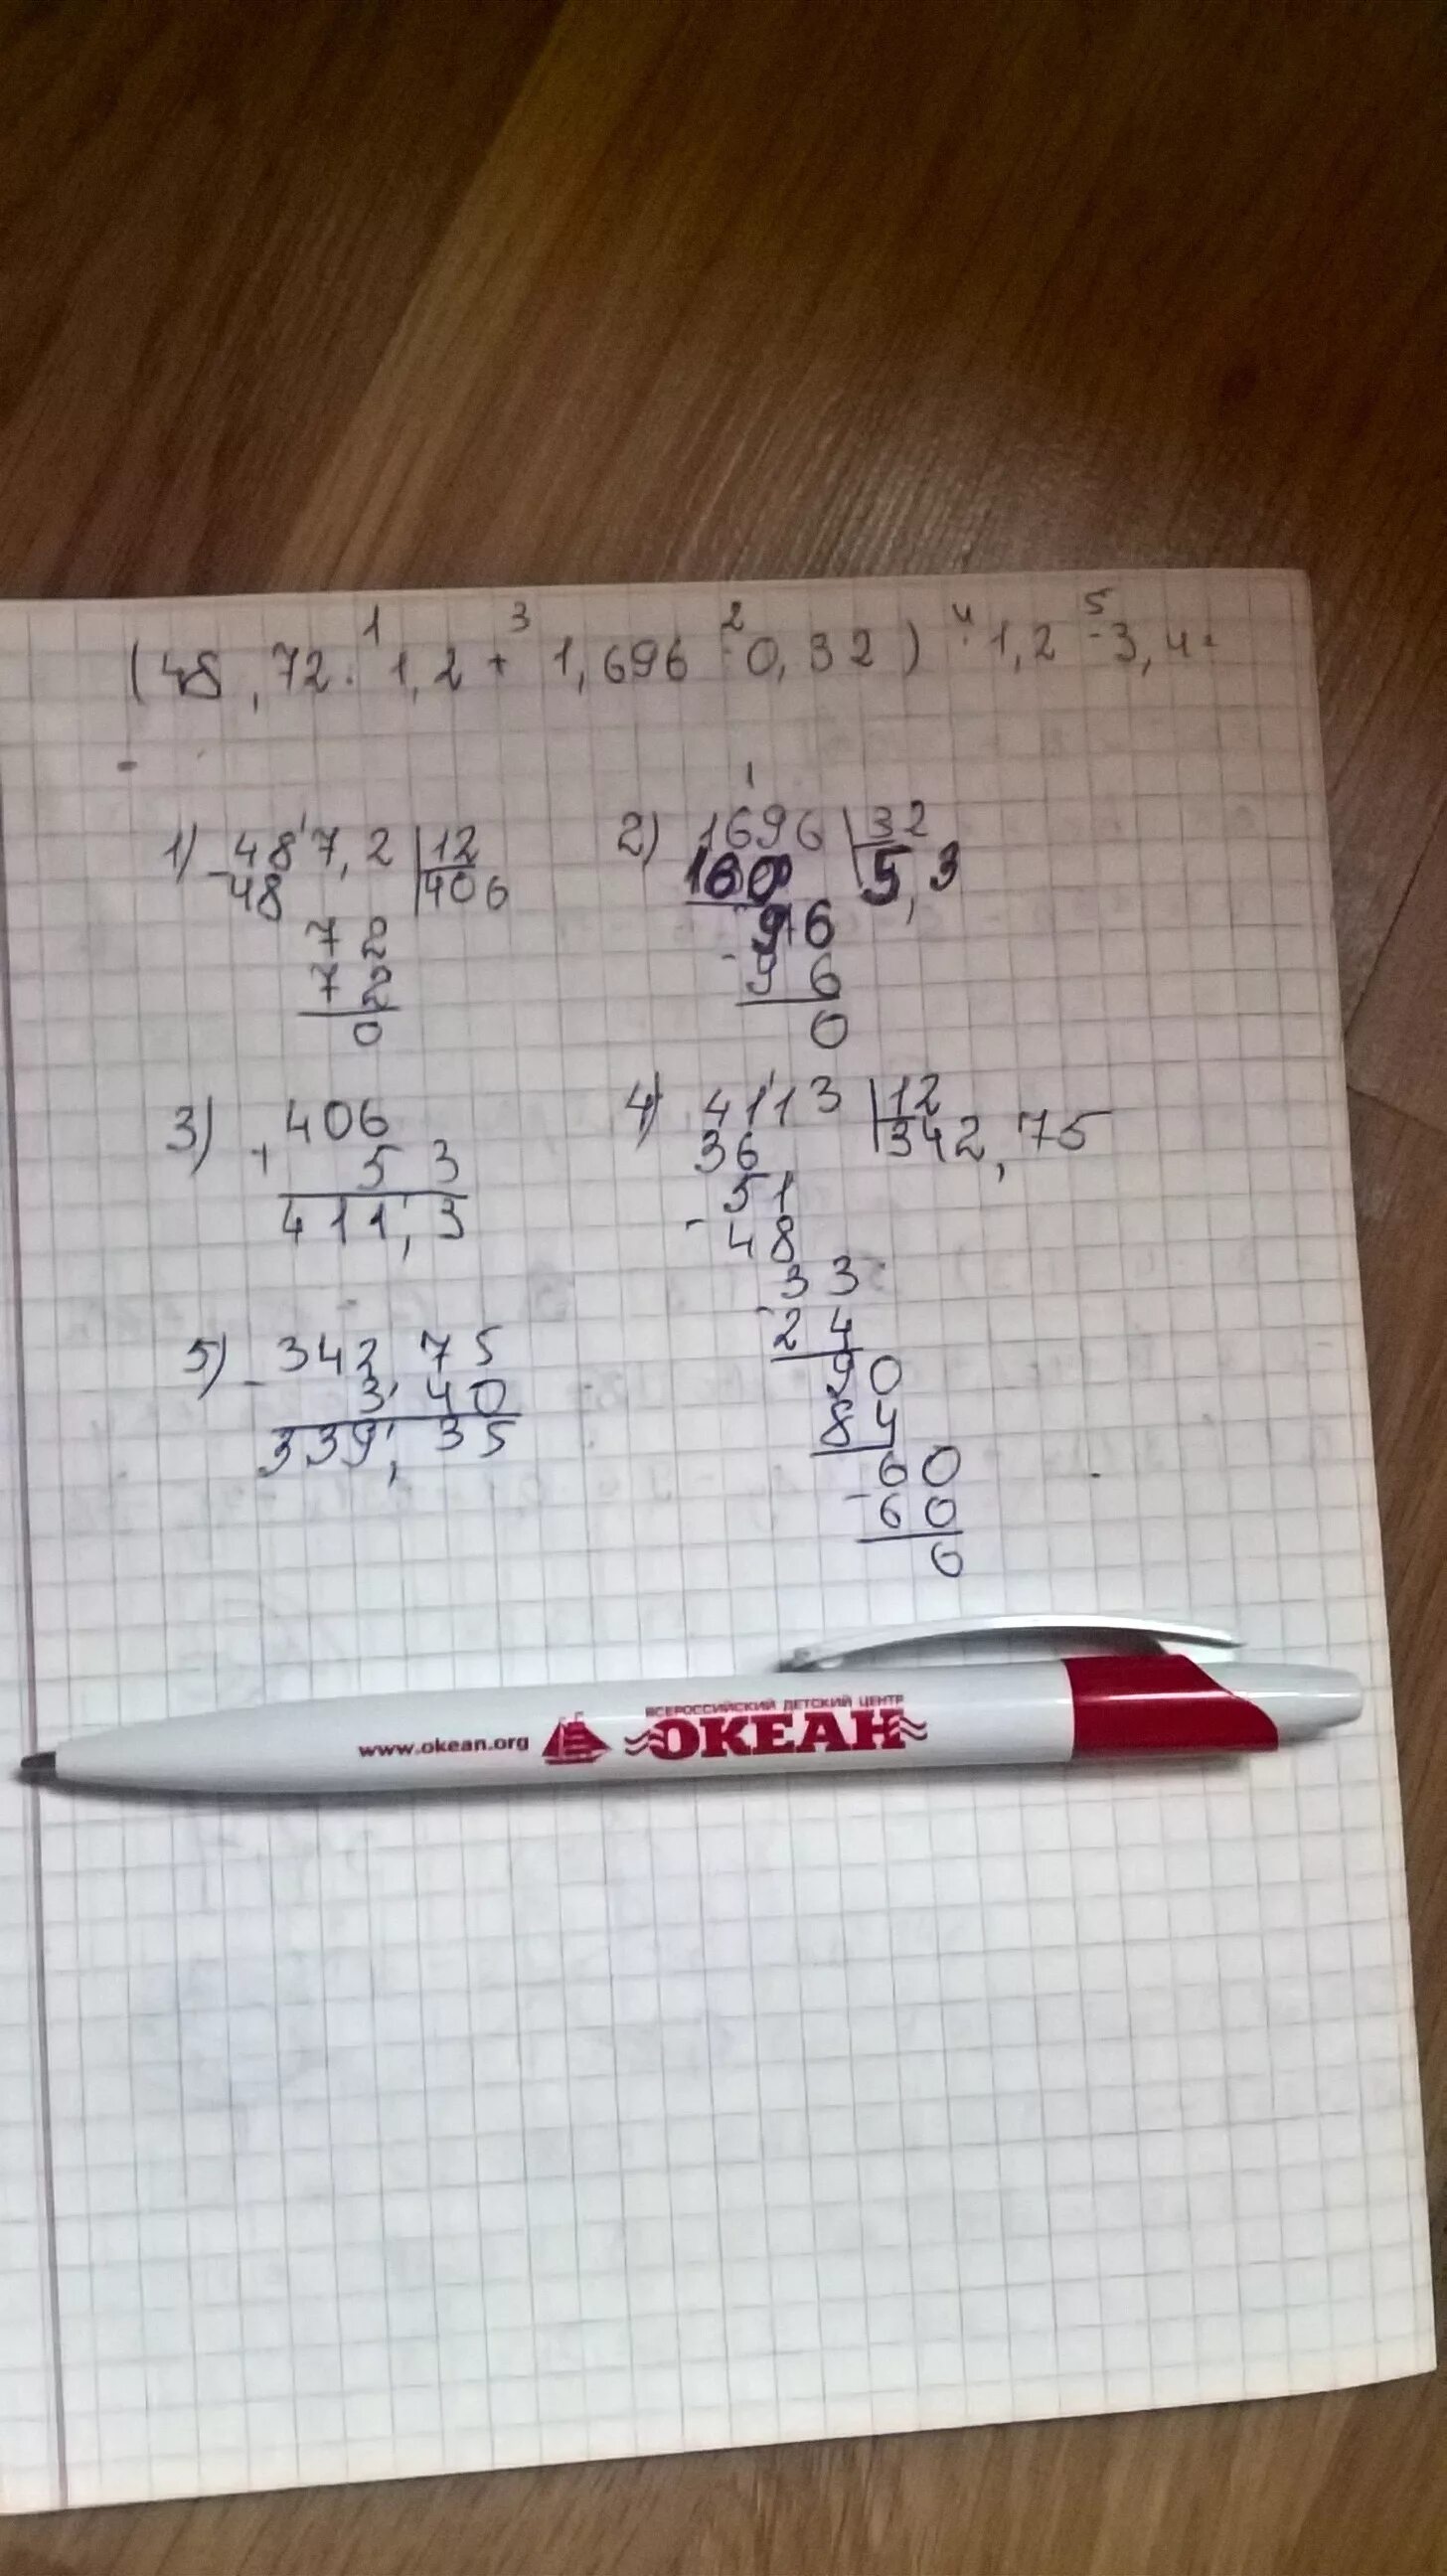 1 3 2 4 5
(48,72 : 1,2 + 1,696 : 0,32) : 1,2 - 3,4 =
1) 487,2 |12
- 48 |406
72
72
0
2) 1696 |32
160 |5,3
96
- 96
0
3) 406
+ 5 3
411,3
4) 4113 |12
36 |342,75
51
- 48
33
- 24
90
84
60
- 60
6
5) 342,75
- 3,40
339,35
ВСЕРОССИЙСКИЙ ДЕТСКИЙ ЦЕНТР
www.okean.org ОКЕАН